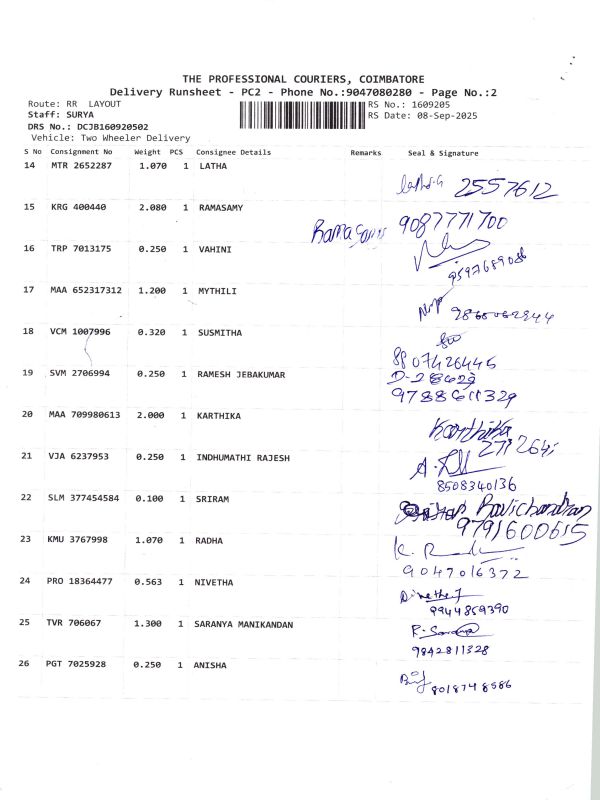 THE PROFESSIONAL COURIERS, COIMBATORE
Delivery Runsheet - PC2 - Phone No.:9047080280 - Page No.:2
Route: RR LAYOUT
RS No.: 1609205
Staff: SURYA
RS Date: 08-Sep-2025
DRS No.: DCJB160920502
Vehicle: Two Wheeler Delivery
S No Consignment No Weight PCS Consignee Details Remarks Seal & Signature
14 MTR 2652287 1.070 1 LATHA
2557612
15 KRG 400440 2.080 1 RAMASAMY
Ramasamy 9087771700
16 TRP 7013175 0.250 1 VAHINI
9597689086
17 MAA 652317312 1.200 1 MYTHILI
18 VCM 1007996 0.320 1 SUSMITHA
8807426445
19 SVM 2706994 0.250 1 RAMESH JEBAKUMAR
9788611329
20 MAA 709980613 2.000 1 KARTHIKA
Karthika
21 VJA 6237953 0.250 1 INDHUMATHI RAJESH
8508340136
22 SLM 377454584 0.100 1 SRIRAM
Ravichandran
9791600615
23 KMU 3767998 1.070 1 RADHA
9047016372
24 PRO 18364477 0.563 1 NIVETHA
9944859390
25 TVR 706067 1.300 1 SARANYA MANIKANDAN
9842811328
26 PGT 7025928 0.250 1 ANISHA
8018748586